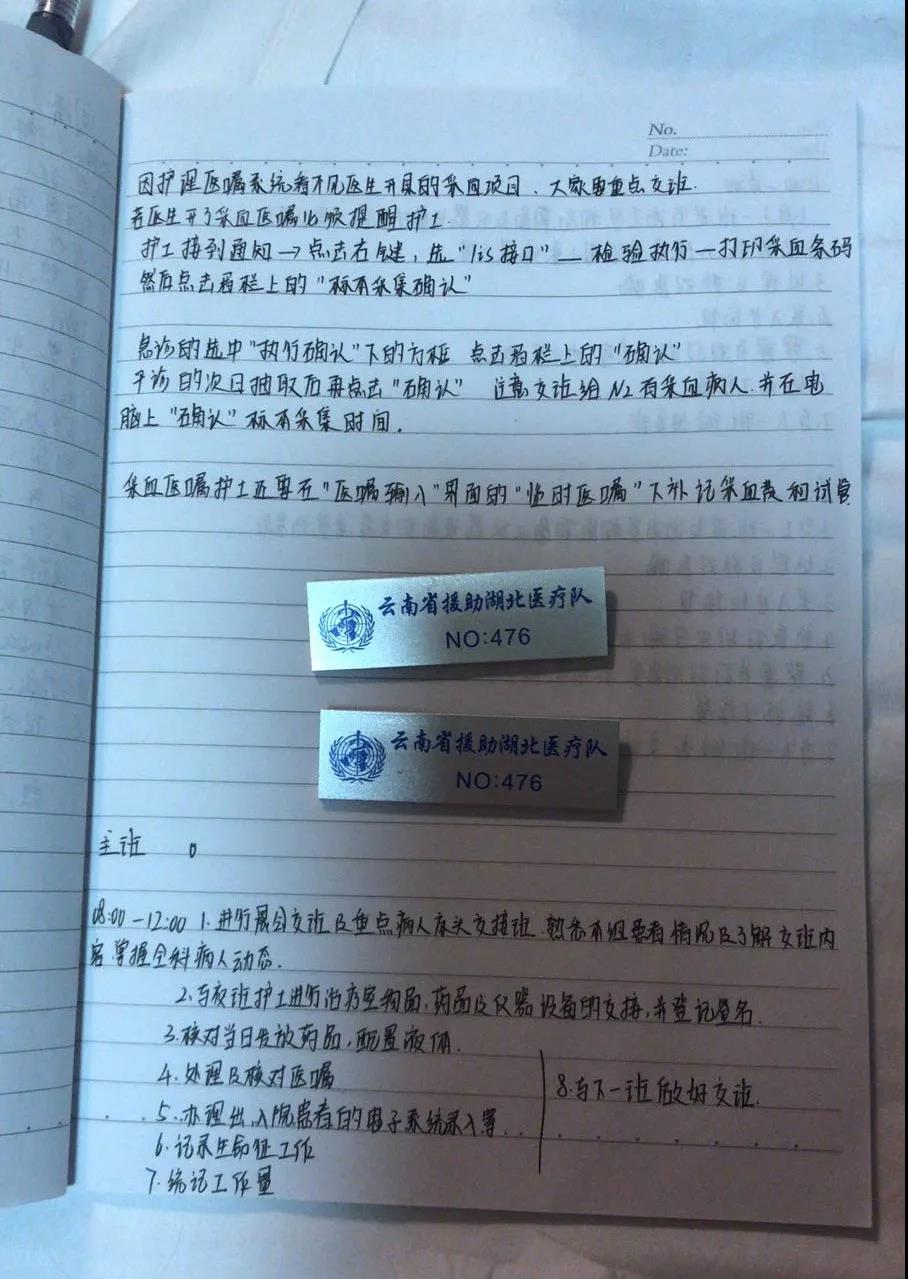 No.
Date:
因护理医嘱系统看不见医生开具的采血项目、大家要重点交班.
若医生开了采血医嘱必须提醒护士
护士接到通知→点击右键，选“lis接口”—检验执行—打印采血条码
然后点击菜栏上的“标本采集确认”
急诊的选中“执行确认”下的方框 点击菜栏上的“确认”
平诊的次日抽取后再点击“确认” 注意交班给N2有采血病人.并在电
脑上“确认”标本采集时间.
采血医嘱护士还要在“医嘱输入”界面的“临时医嘱”下补记采血费和试管
云南省援助湖北医疗队
NO:476
云南省援助湖北医疗队
NO:476
主班
08:00-12:00 1.进行晨会交班及重点病人床头交接班.熟悉本组患者情况及了解交班内
容掌握全科病人动态.
2.与夜班护士进行治疗室物品,药品及仪器设备的交接,并登记签名.
3.核对当日发放药品,配置液体.
4.处理及核对医嘱
5.办理出、入院患者的电子系统录入等.
6.记录生命征工作
7.统记工作量
8.与下一班做好交班.